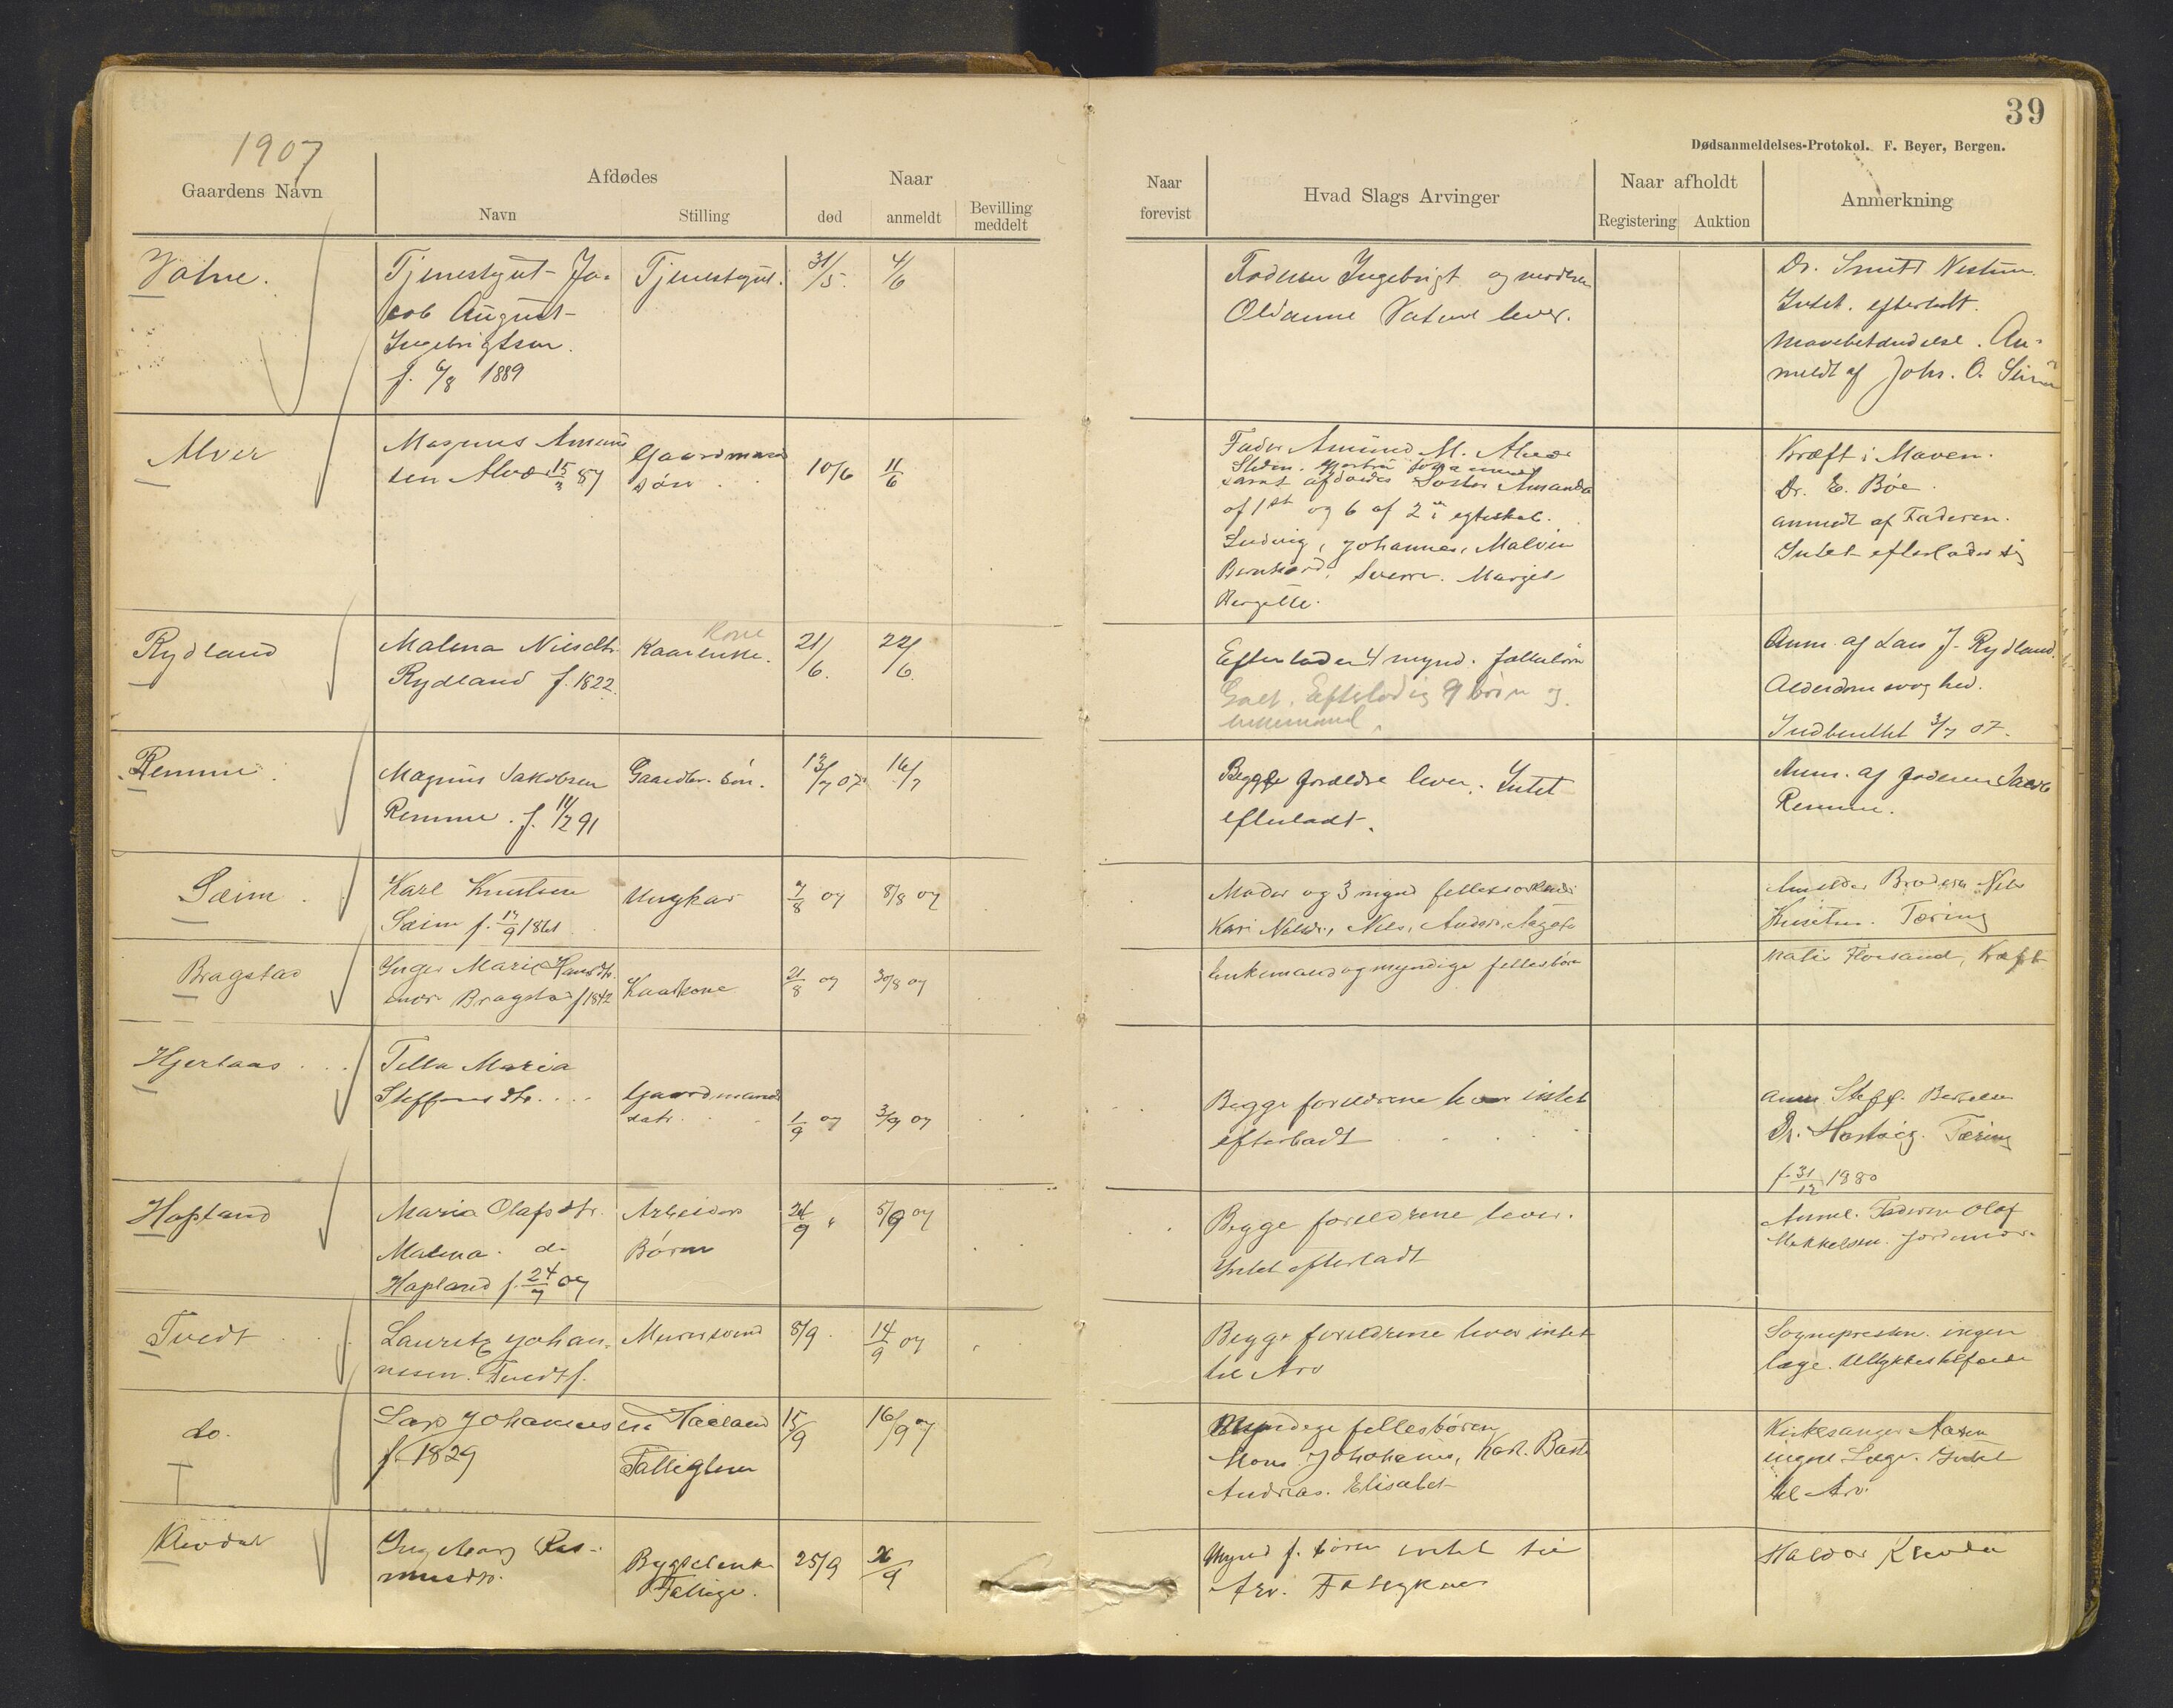 39
Dødsanmeldelses-Protokol. F. Beyer, Bergen.
1907
Gaardens Navn
Afdødes
Navn
Stilling
Naar
død
anmeldt
Bevilling
meddelt
Naar
forevist
Hvad Slags Arvinger
Naar afholdt
Registering
Auktion
Anmerkning
Vatne.
Tjenestgut Ja-
cob August
Ingebrigtsen.
f. 6/8 1889
Tjenestgut.
31/5.
4/6
Faderen Ingebrigt og moderen
Oldanne Vatne lever.
Dr. Smitt Nestun.
Intet efterladt.
Mavebetændelse. An-
meldt af Johs. O.
Alver
Magnus Amund
sen Alver 15/3 87
Gaardmands
søn
10/6
11/6
Fader Amund M. Alver
samt afdødes Søster Amanda
af 1st og 6 af 2 egteskab.
Ludvig, Johannes, Malvin
Bernhard, Sverre. Margit
Kræft i Maven.
Dr. E. Bøe.
anmedt af Faderen.
Intet efterlader sig
Rydland
Malena Nilsdtr.
Rydland f. 1822.
Kone
Kaarenke.
21/6.
22/6.
Efterlader 4 mynd. fællesbørn
Galt. Efterlod sig 9 børn og
enkemand.
Anm. af Lars J. Rydland.
Alderdomssvaghed.
Indberettet 3/7 07.
Remme.
Magnus Jakobsen
Remme. f. 11/2 91
Gaardbr. søn.
13/7 07
16/7
Begge forældre lever. Intet
efterladt.
Anm. af faderen Jacob
Remme.
Sæim.
Karl Knutsen
Sæim f. 17/9 1861
Ungkar
7/8 07
8/8 07
Moder og 3 mynd felles
Kari Nilsdr., Nils, Anders, Aagote
Anmelder Broderen Nils
Knutsen. Tæring
Bragstad
Inger Marie Hansdtr.
Bragstad f 1842
Kaarkone
21/8 07
30/8 07
Enkemand og myndige fellesbørn
Kræft
Hjertaas
Tella Maria
Steffensdtr.
Gaardmands
datr.
1/9 07
3/9 07
Begge foreldrene lever intet
efterladt
anm. Steff. Bertelsen
Dr. Hartvig. Tæring
f. 31/12 1880
Hopland
Maria Olafsdtr.
Malena do
Hopland f. 24/7 07
Arbeiders
Børn
5/9 07
Begge foreldrene lever.
Intet efterladt
Anml. Faderen Olaf
Mikkelsen. jordmor.
Tvedt
Lauritz Johan-
nesen. Tvedt f.
Murersvend
8/9.
14/9 07
Begge foreldrene lever intet
til Arv
Sognepresten. ingen
læge. Ulykkestilfælde
do.
Lars Johannesen
f. 1829
Fattiglem
15/9
16/9 07
Myndige fellesbørn
Mons Johannes, Karl. Bastian
Andreas. Elisabet
Kirkesanger Aasen
ingen Læge. Intet
til Arv.
Klevdal
Ingeborg Ras-
musdtr.
Bygselenke
Fattige.
25/9
26/9
Mynd f. børn intet til
Arv.
Haldor Klevdal